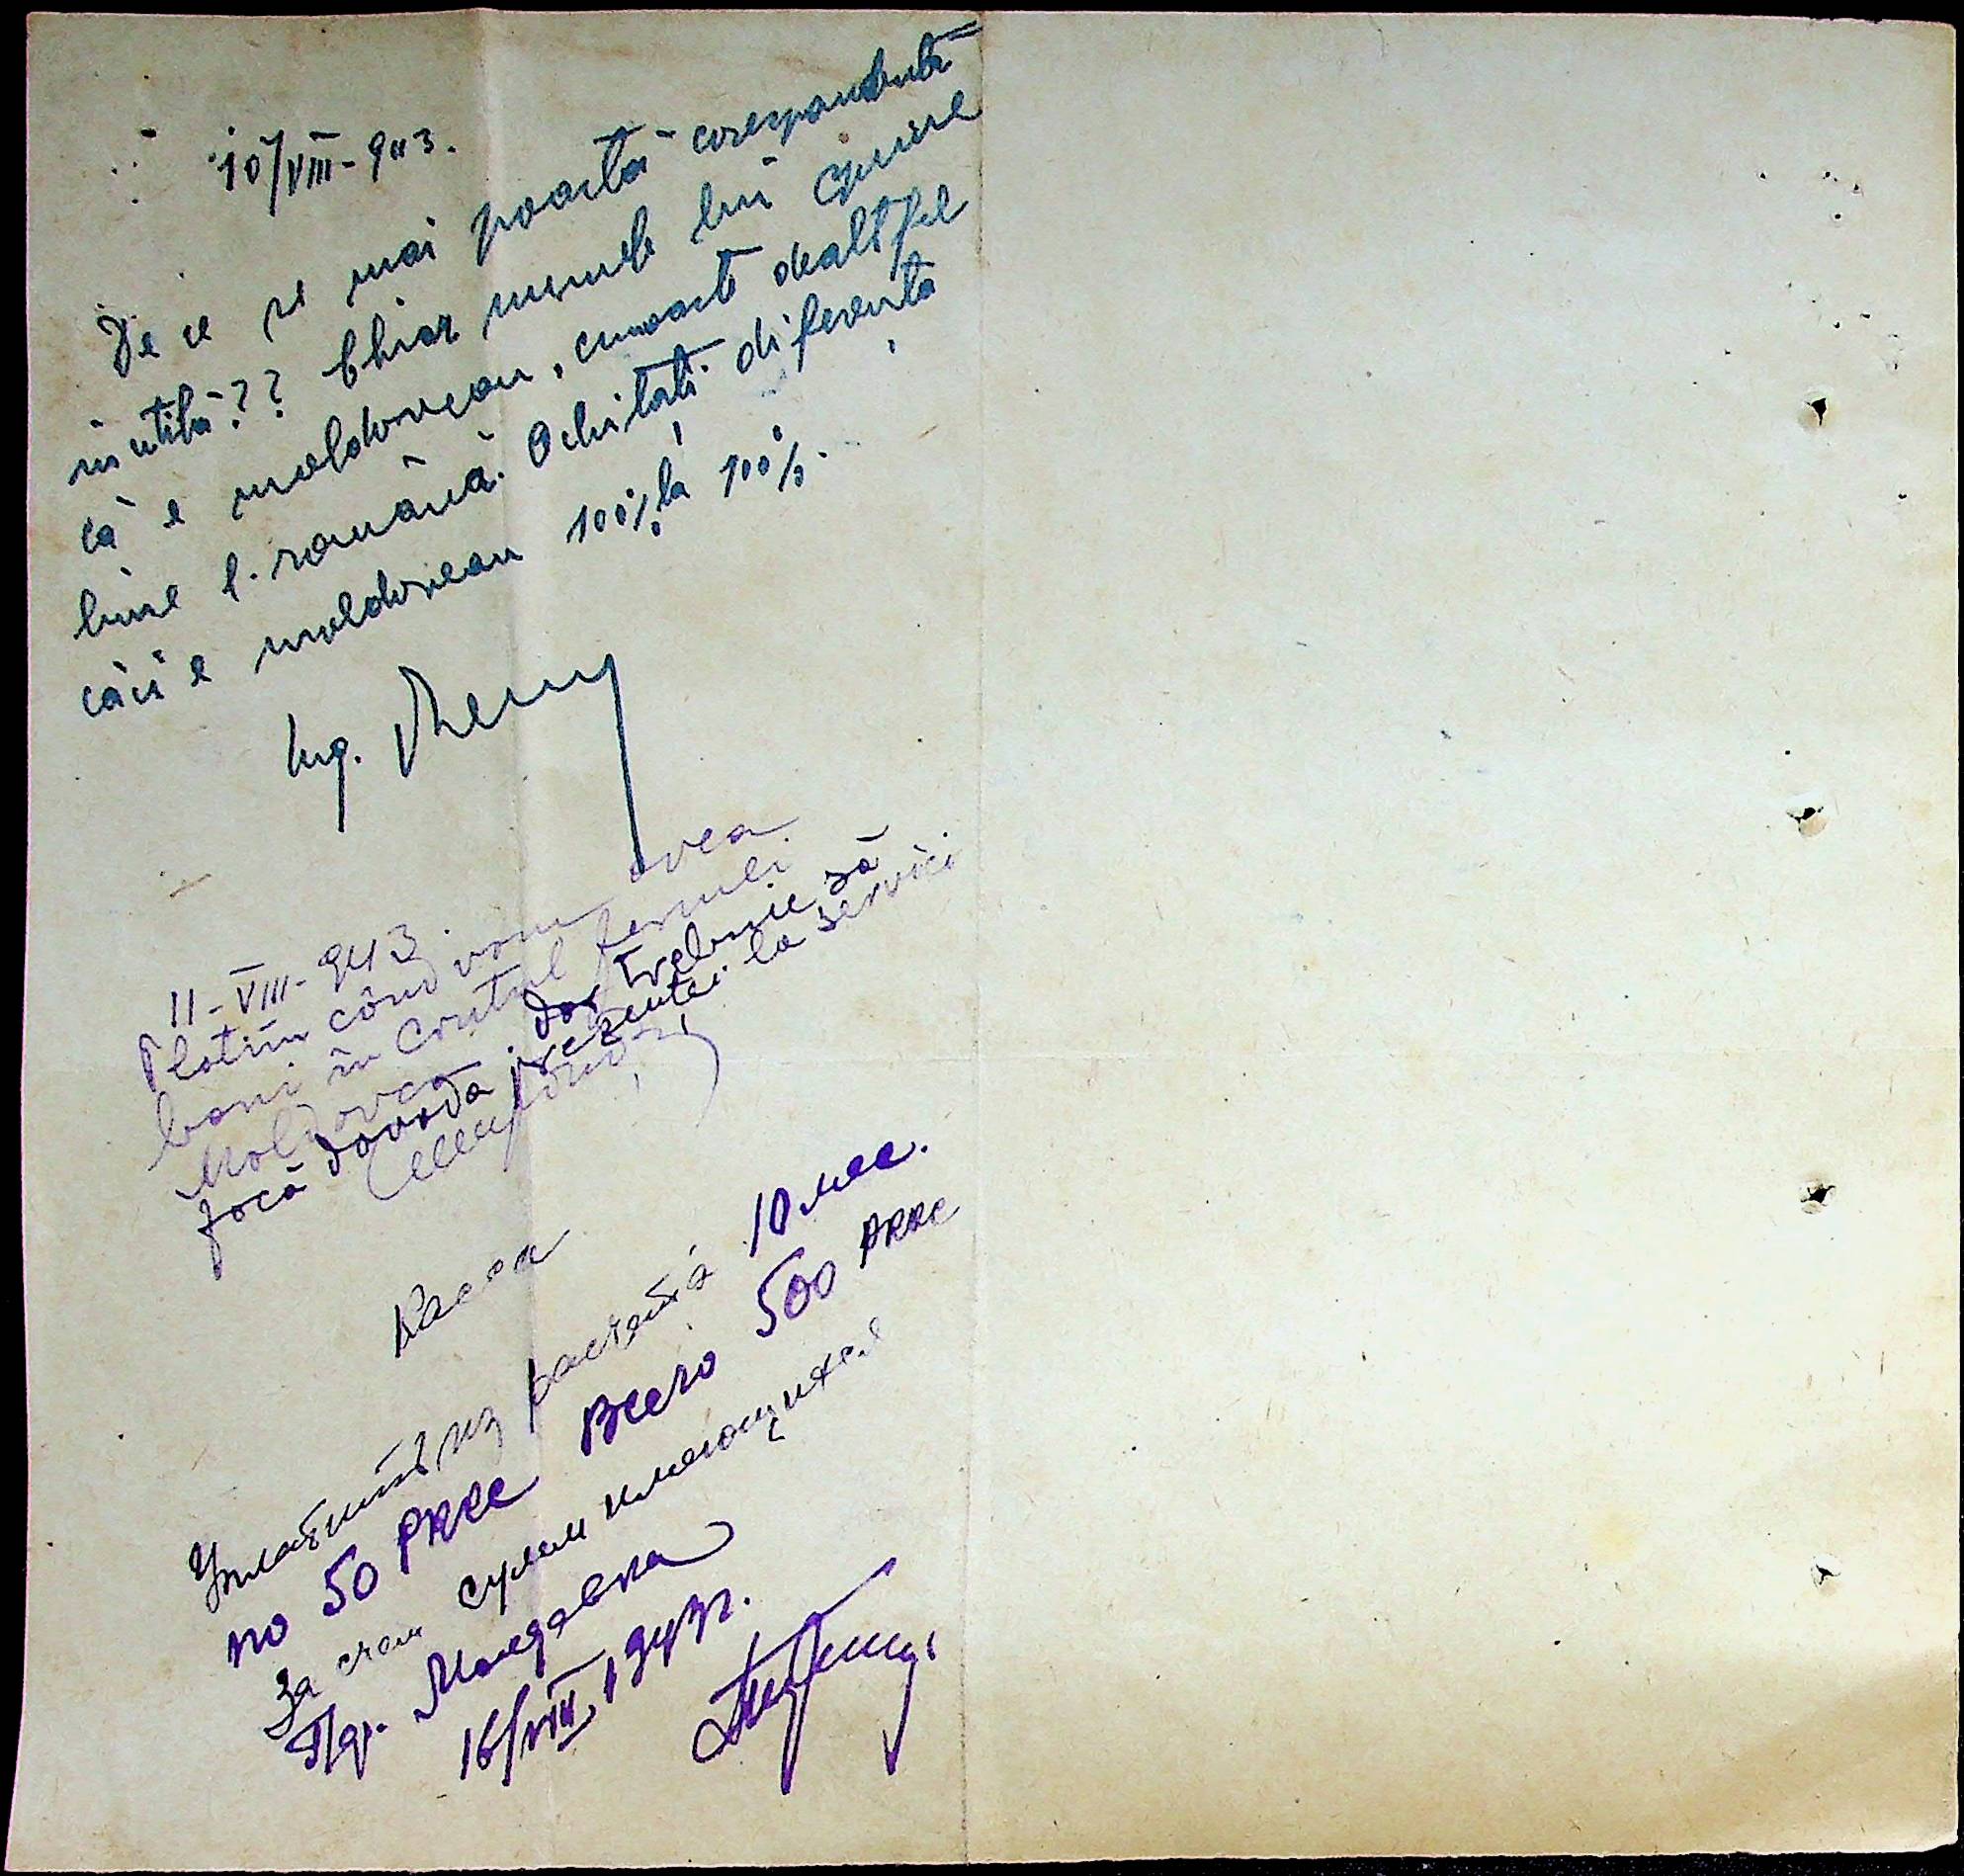 10/VIII-943.
De ce se mai poartă corespondență
inutilă?? Chiar numele lui spune
că e moldovean, cunoaște dealtfel
bine l. română. Achitați diferența
căci e moldovean 100% la 100%.
Ing.
11-VIII-943.
Plătim când vom avea
bani în contul fermei
Moldovca. dar trebuie să
facă dovada prezenței la servici
Касса
Уплатить из расчета 10 мес.
по 50 РККС Всего 500 РККС
За счет сумм имеющихся
Пдр. Молдавка
16/VIII 1943г.